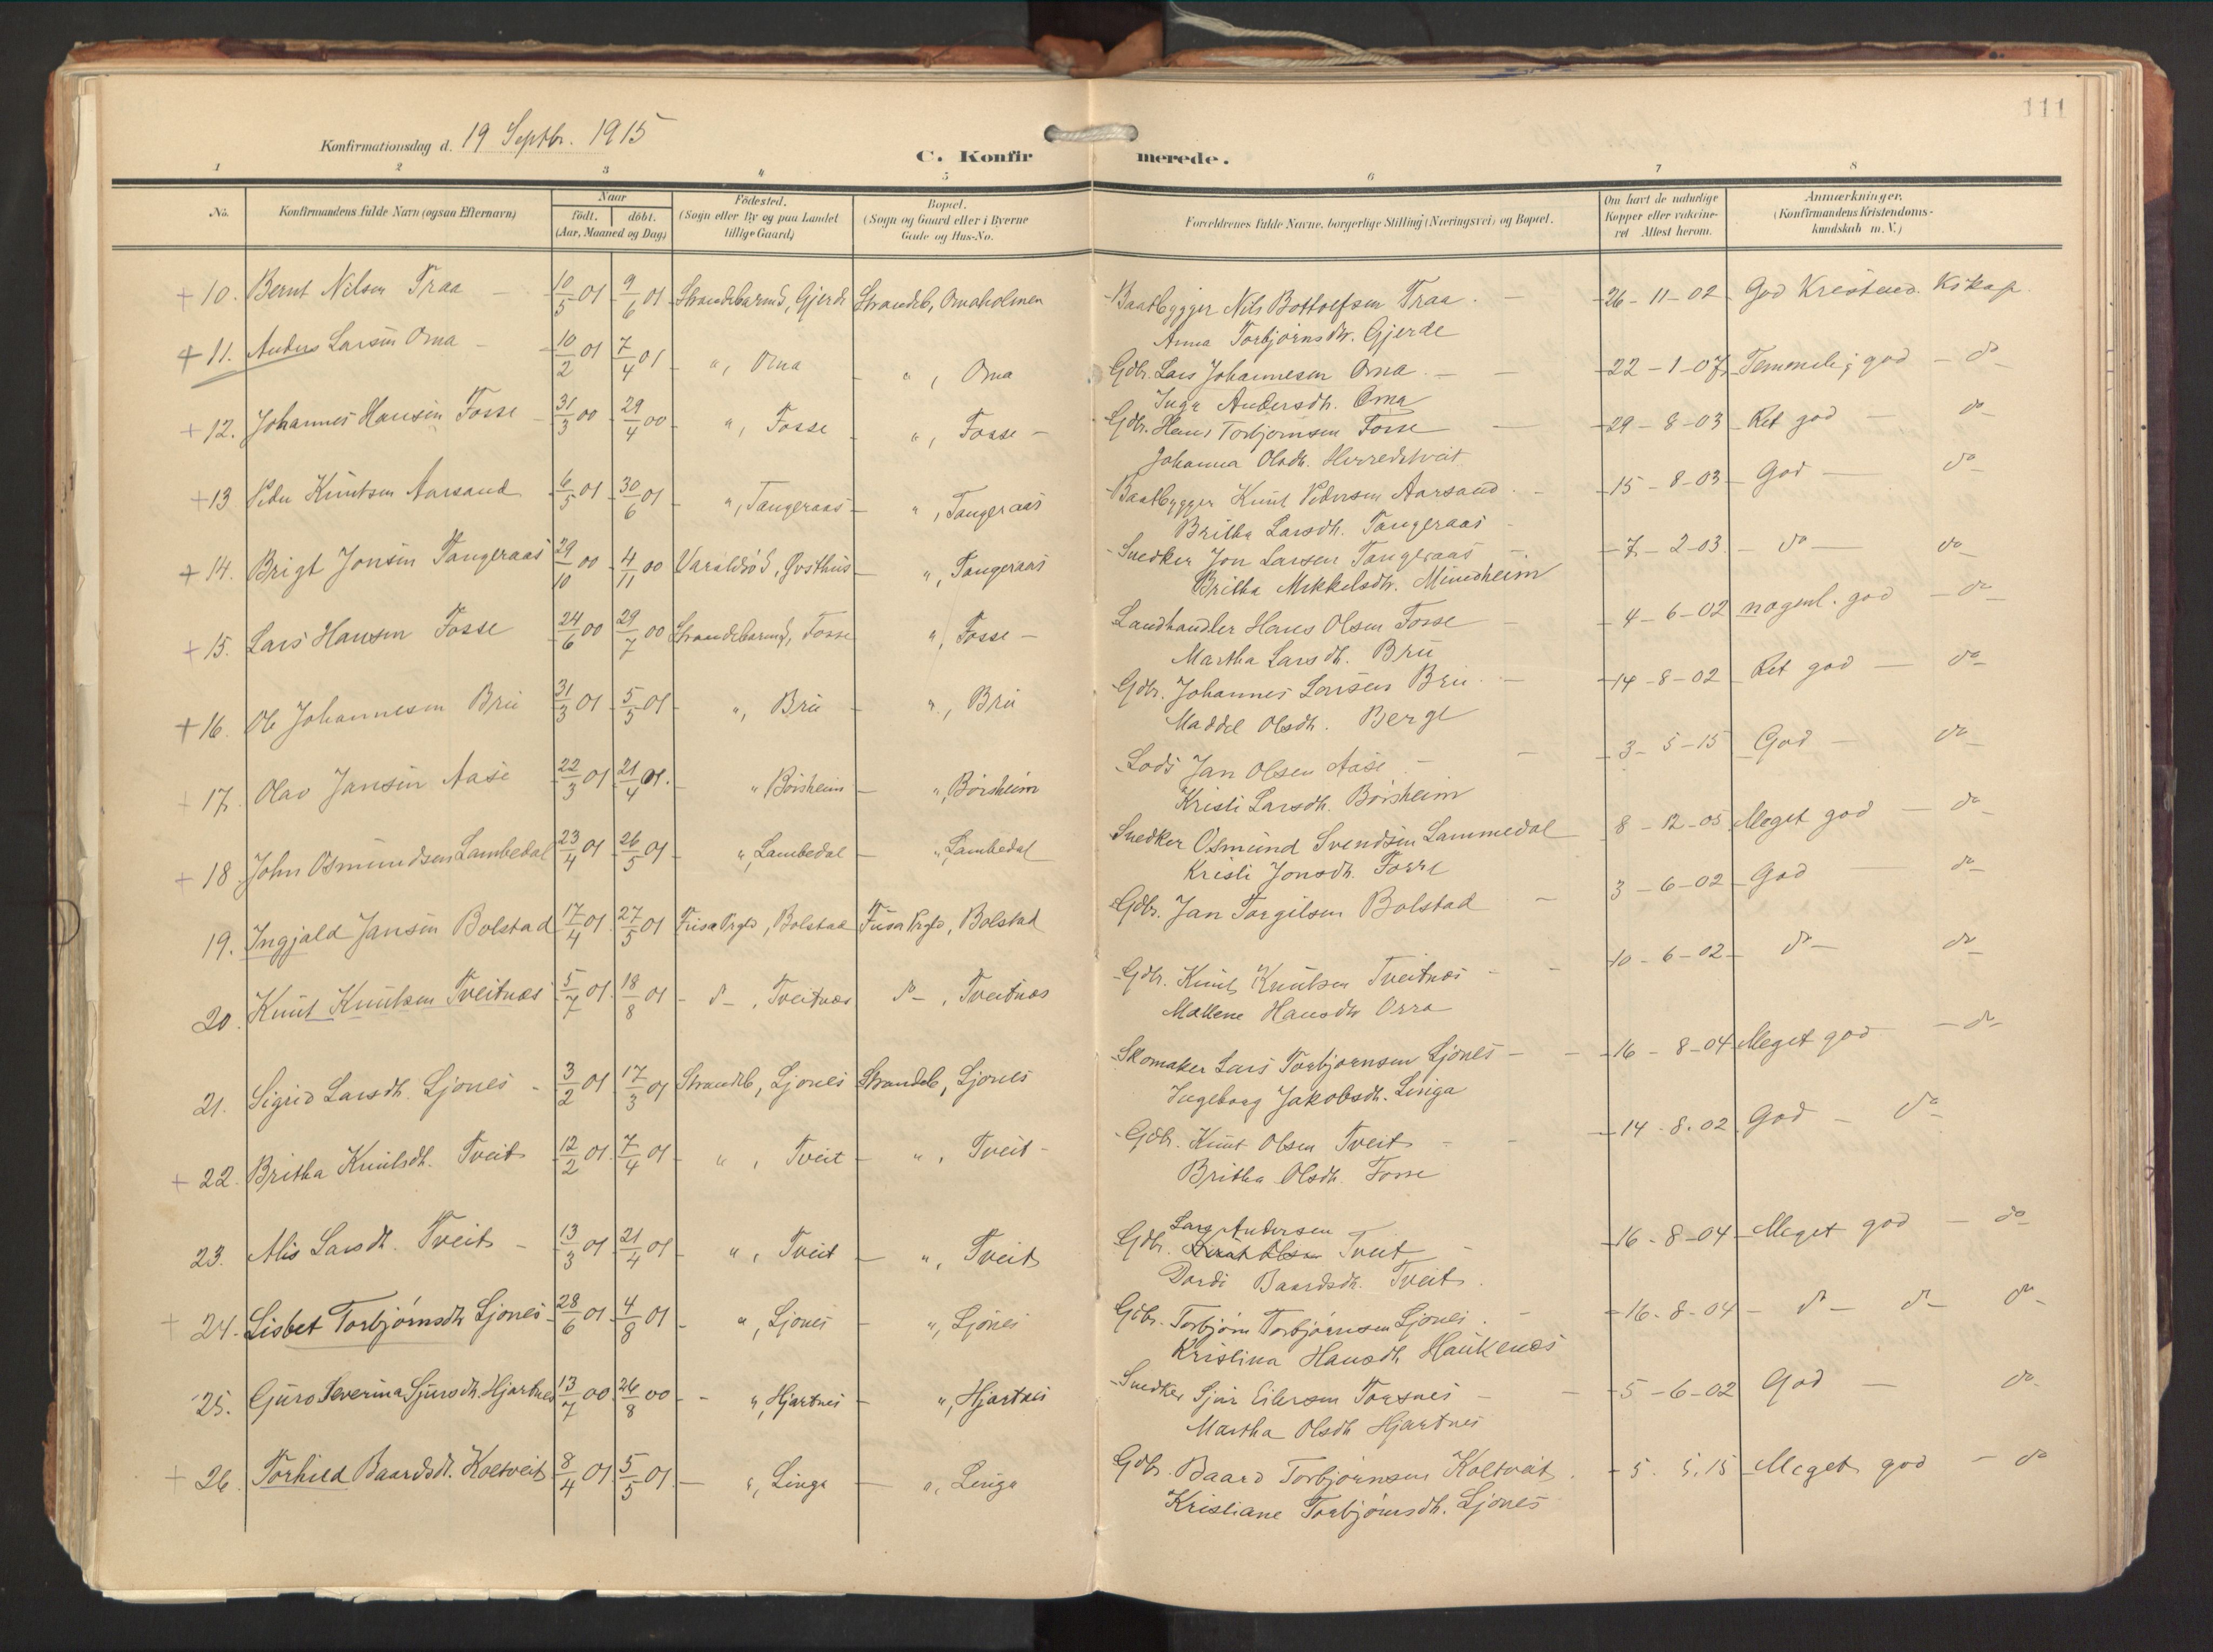 111
Konfirmationsdag d. 19 Septbr. 1915
C. Konfir merede.
1 2 3 4 5 6 7 8
No. Konfirmandens fulde Navn (ogsaa Efternavn) Naar født. døbt. (Aar, Maaned og Dag) Fødested. (Sogn eller By og paa Landet tillige Gaard) Bopæl. (Sogn og Gaard eller i Byerne Gade og Hus-No. Forældrenes fulde Navne, borgerlige Stilling (Næringsvei) og Bopæl. Om havt de naturlige Kopper eller vakcineret Attest herom. Anmærkninger. (Konfirmandens Kristendomskundskab m. V.)
+ 10. Bernt Nilsen Traa 10/5 01 9/6 01 Strandebarm S, Gjerde Strandeb, Omaholmen Baatbygger Nils Bottolfsen Traa. 26-11-02 God Kristend. Kskap
Anna Torbjørnsdtr. Gjerde
+ 11. Anders Larsen Oma 10/2 01 7/4 01 ", Oma ", Oma Gdbr. Lars Johannesen Oma 22-1-07 Temmeli; god - do
Inga Andersdtr. Oma
+ 12. Johannes Hansen Fosse 31/3 00 29/4 00 ", Fosse ", Fosse Gdbr. Hans Torbjørnsen Fosse 29-8-03 Ret god - do
Johanna Olsdtr. Herredstveit
+ 13 Peder Knutsen Aarsand 6/5 01 30/6 01 ", Tangeraas ", Tangeraas Baatbygger Knut Pedersen Aarsand 15-8-03 God - do
Britha Larsdtr. Tangeraas
+ 14. Brigt Jonsen Tangeraas 29/10 00 4/11 00 Varaldsø S, Øvsthus ", Tangeraas Snedker Jon Larsen Tangeraas 7-2-03 - do - do
Britha Mikkelsdtr. Mundheim
+ 15. Lars Hansen Fosse 24/6 00 29/7 00 Strandebarm S, Fosse ", Fosse Landhandler Hans Olsen Fosse 4-6-02 nogenl. god - do
Martha Larsdtr. Bru
+ 16. Ole Johannesen Bru 31/3 01 5/5 01 ", Bru ", Bru Gdbr. Johannes Larsen Bru 14-8-02 Ret god - do
Maddel Olsdtr. Berge
+ 17. Olav Jansen Aase 22/3 01 21/4 01. " Børsheim ", Børsheim Lods Jan Olsen Aase 3-5-15 God - do
Kristi Larsdtr. Børsheim
+ 18 John Osmundsen Lambedal 23/4 01 26/5 01 ", Lambedal ", Lambedal Snedker Osmund Svendsen Lammedal 8-12-05 Meget god - do
Kristi Jonsdtr. Forre
19. Ingjald Jansen Bolstad 17/4 01 27/5 01 Fusa Prgld, Bolstad Fusa Prgld, Bolstad Gdbr. Jan Torgilsen Bolstad 3-6-02 God - do
20. Knut Knutsen Tveitnes 5/7 01 18/8 01 do, Tveitnes do, Tveitnes Gdbr. Knut Knutsen Tveitnes 10-6-02 do do
Mallene Hansdtr Orra
21. Sigrid Larsdtr. Ljones 3/2 01 17/3 01 Strandeb, Ljones Strandeb, Ljones Skomaker Lars Torbjørnsen Ljones 16-8-04 Meget god - do
Ingeborg Jakobsdtr. Linga
+ 22. Britha Knutsdtr. Tveit 12/2 01 7/4 01 ", Tveit ", Tveit Gdbr. Knut Olsen Tveit 14.8.02 God - do
Britha Olsdtr. Fosse
23. Alis Larsdtr. Tveit 13/3 01 21/4 01 ", Tveit ", Tveit Gdbr. Lars Andersen Tveit 16-8-04 Meget god - do
Dordi Baardsdtr. Tveit
+ 24. Lisbet Torbjørnsdtr Ljones 28/6 01 4/8 01 ", Ljones ", Ljones Gdbr. Torbjørn Torbjørnsen Ljones 16-8-04 - do - do do
Kristina Hansdtr Haukenæs
25. Guro Severina Sjursdtr. Hjartnes 13/7 00 26/8 00 ", Hjartnes ", Hjartnes Snedker Sjur Eilersen Torsnes 5-6-02 God - do
Martha Olsdtr Hjartnes
+ 26. Torhild Baardsdt. Koltveit 8/4 01 5/5 01 ", Linga ", Linga Gdbr. Baard Torbjørnsen Koltveit 5.5.15 Meget god - do
Kristiane Torbjørnsdtr. Ljones